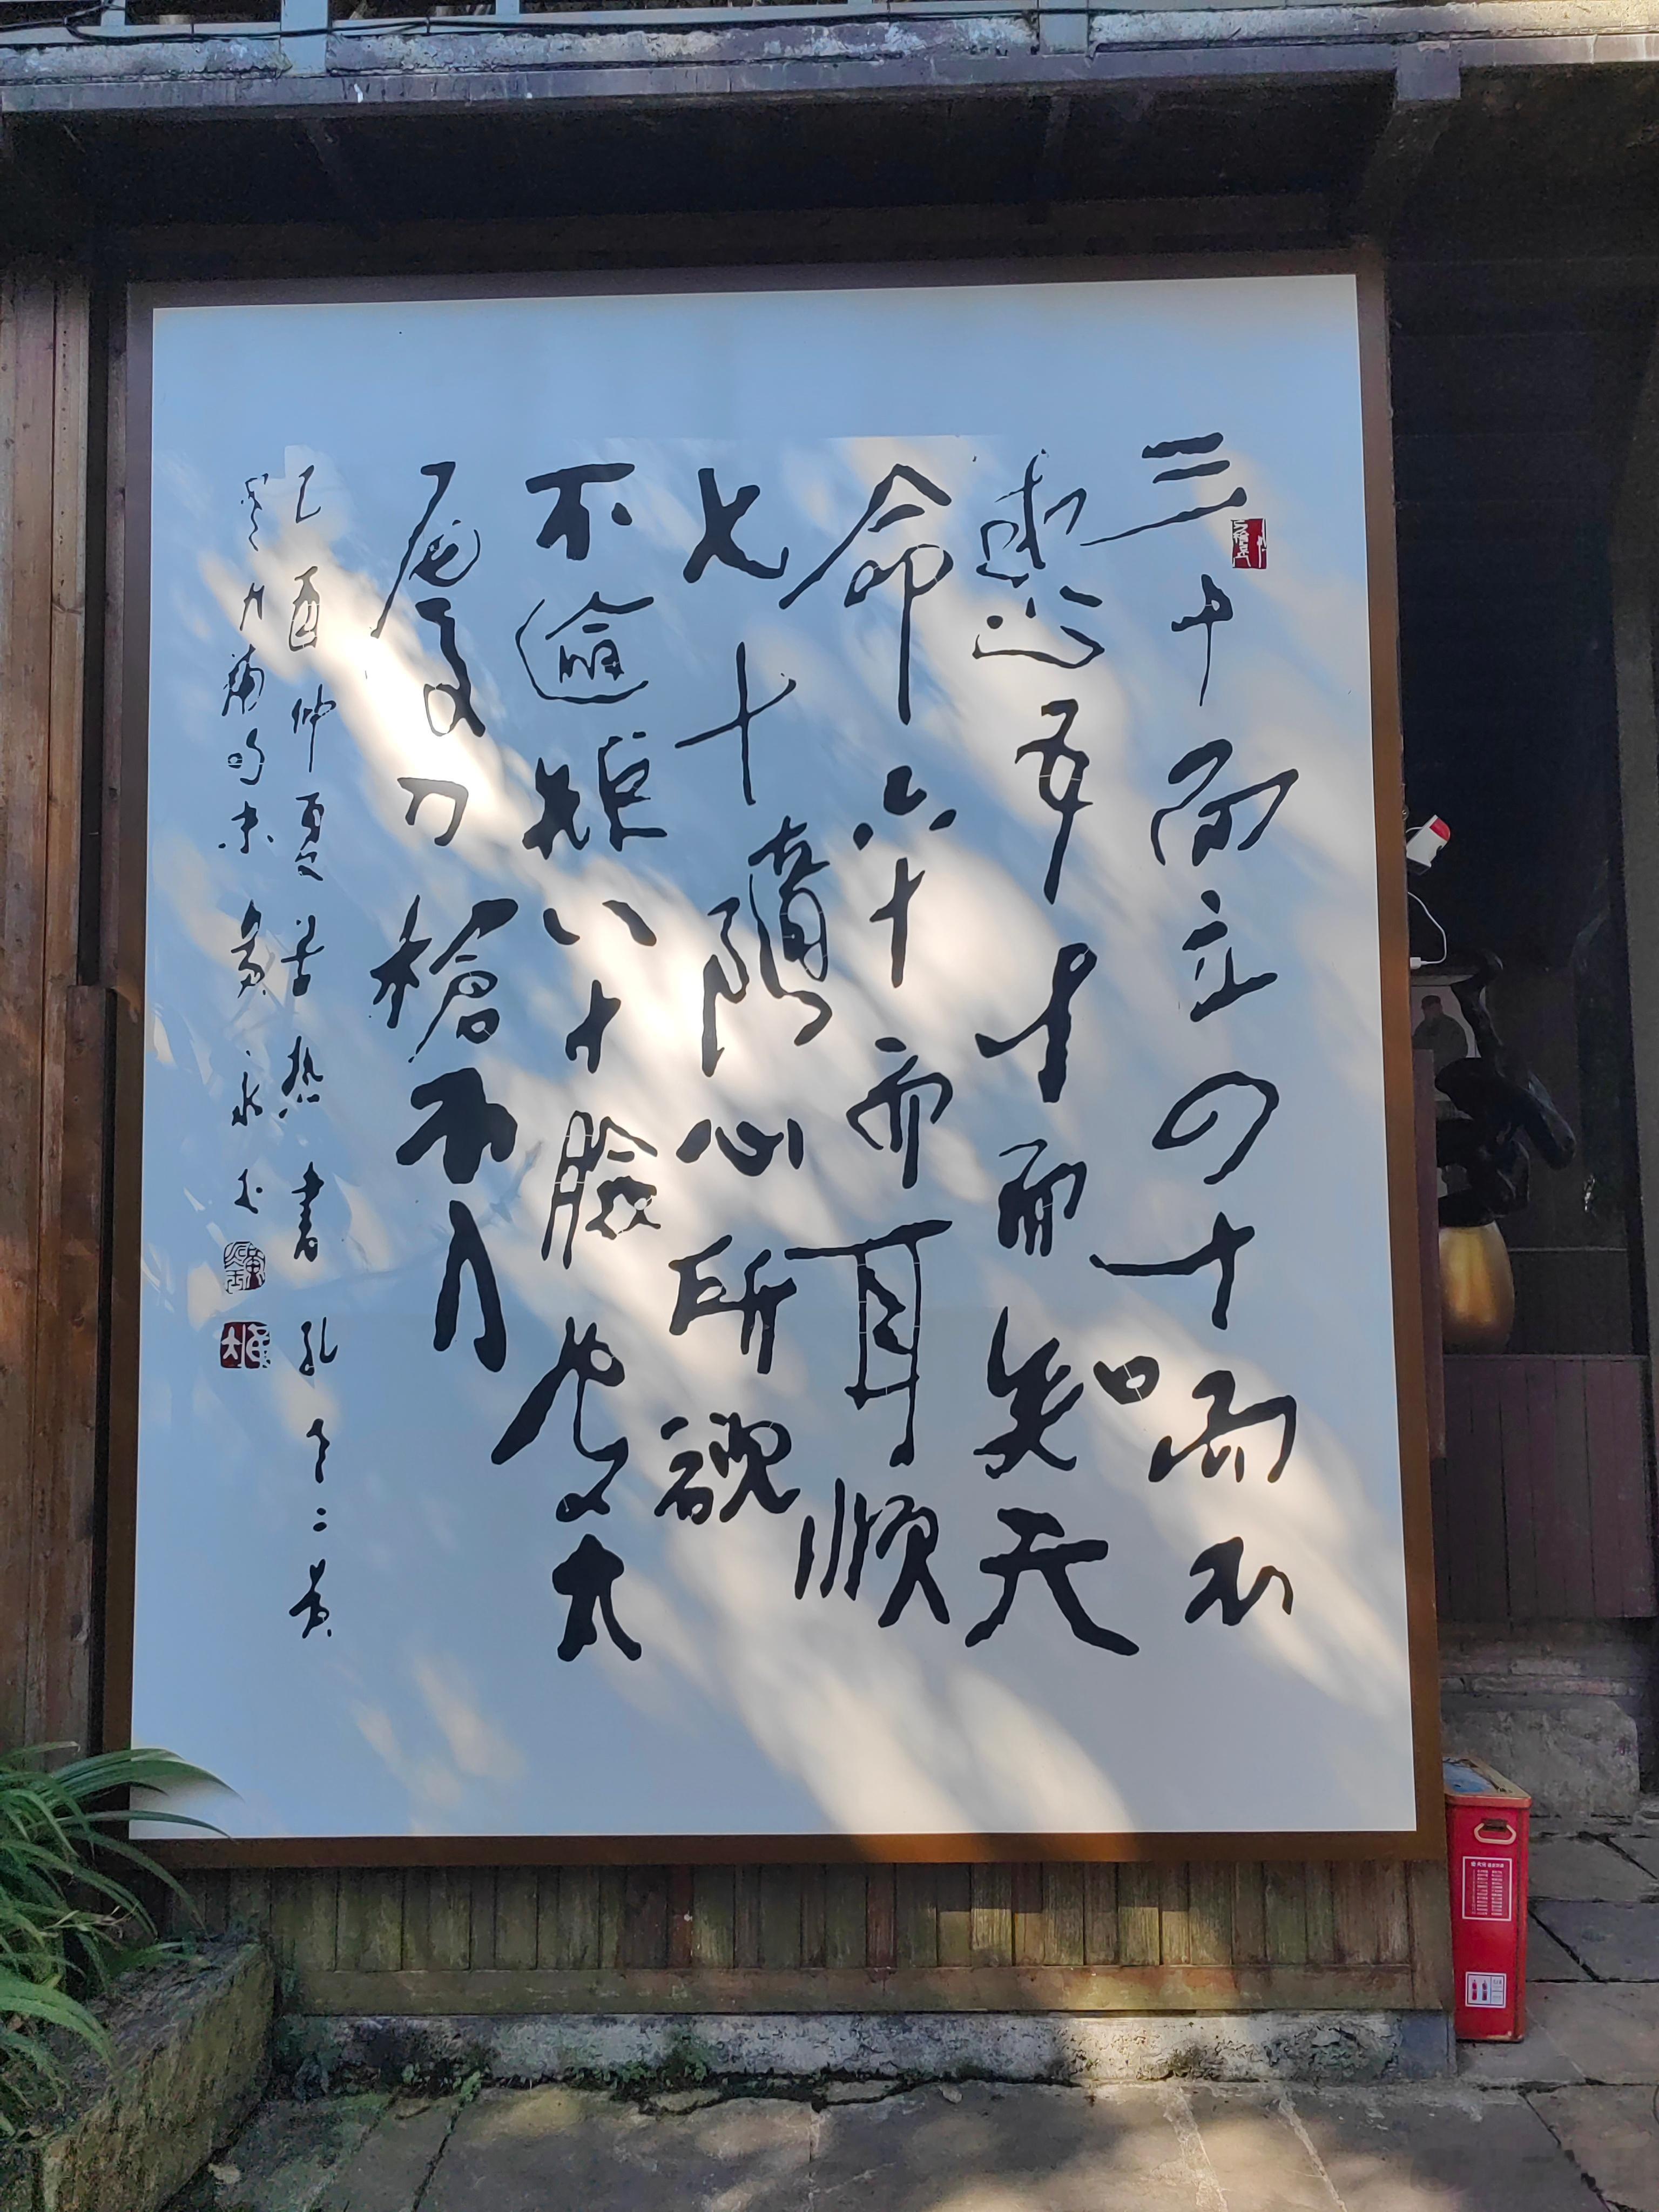 三十而立四十而不
惑五十而知天
命六十而耳順
七十隨心所欲
不逾矩八十臉皮太
厚刀槍不入
乙酉仲夏苦热書孔老二黃
黃永玉